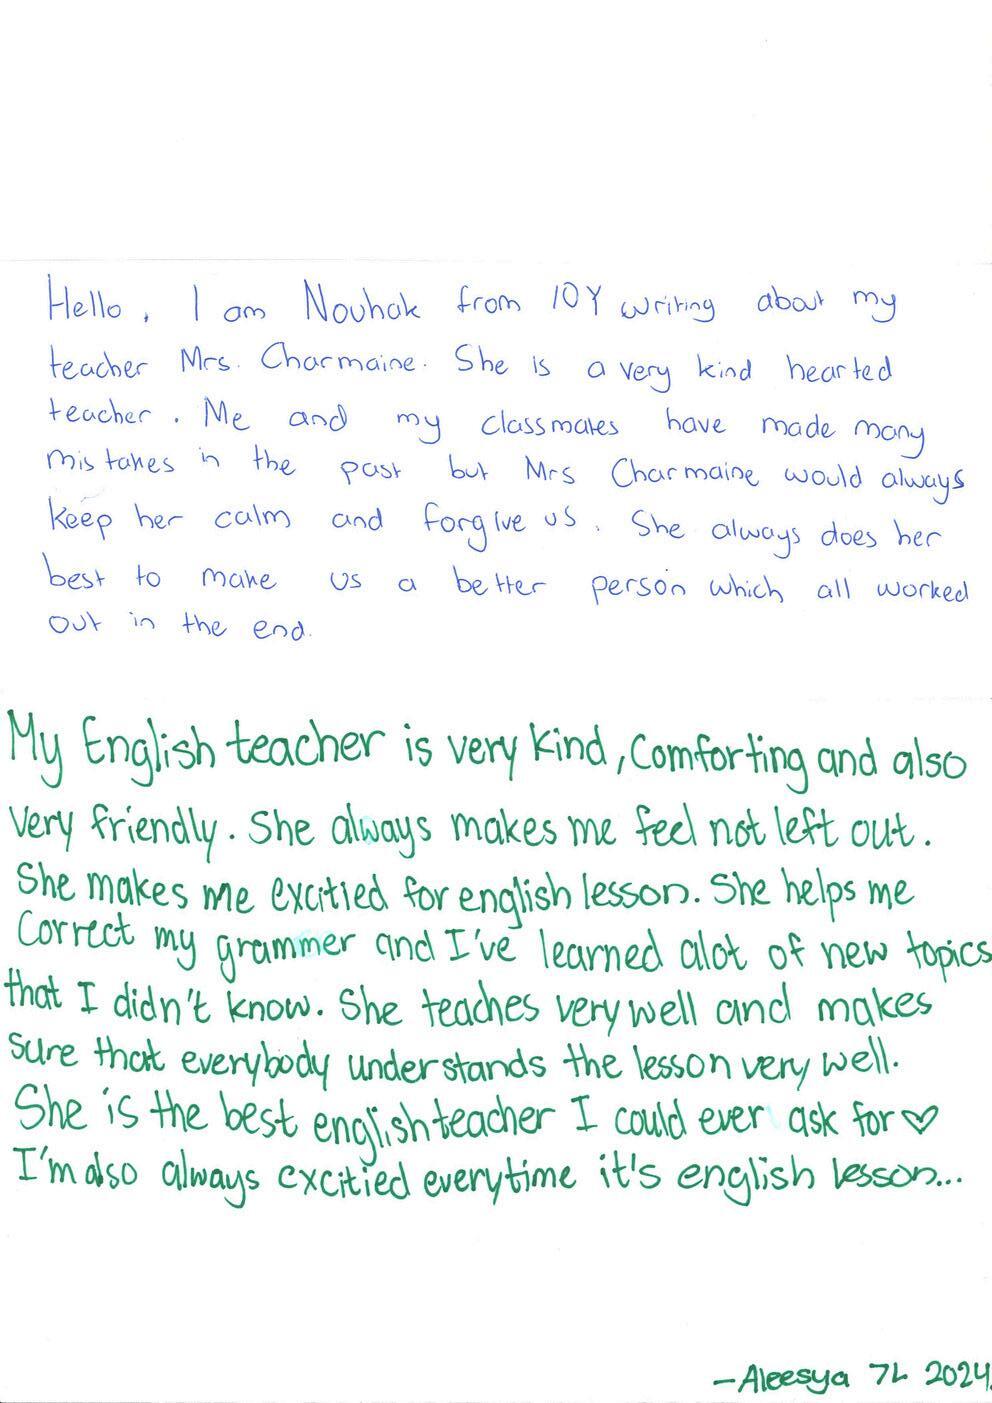 Hello, I am Nouhak from 10Y writing about my
teacher Mrs. Charmaine. She is a very kind hearted
teacher. Me and my classmates have made many
mistakes in the past but Mrs Charmaine would always
keep her calm and forgive us. She always does her
best to make us a better person which all worked
out in the end.
My English teacher is very kind, Comforting and also
very friendly. She always makes me feel not left out.
She makes me excitied for english lesson. She helps me
Correct my grammer and I've learned alot of new topics
that I didn't know. She teaches very well and makes
sure that everybody understands the lesson very well.
She is the best english teacher I could ever ask for ♡
I'm also always excitied everytime it's english lesson...
-Aleesya 7L 2024.